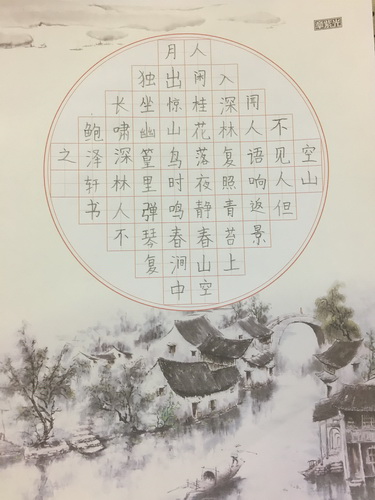 空山
不见人但
闻人语响返景
入深林复照青苔上
人闲桂花落夜静春山空
月出惊山鸟时鸣春涧中
独坐幽篁里弹琴复
长啸深林人不
鲍泽轩书
之